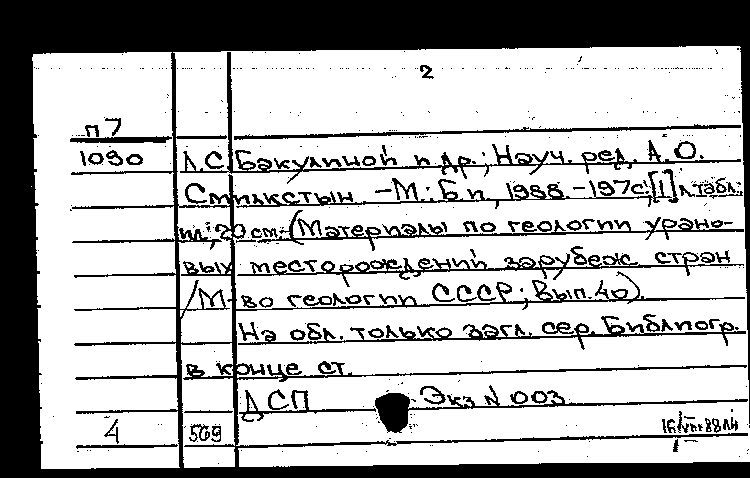 2
п7
1090 Л.С. Бакулиной и др.; Науч. ред. А.О.
Смилкстын. - М.: Б.и, 1988. - 197с., [1] л. табл.:
ил; 20 см. - (Материалы по геологии урано-
вых месторождений зарубеж. стран
/М-во геологии СССР; Вып. 40).
На обл. только загл. сер. Библиогр.
в конце ст.
ДСП Экз N 003
4 569